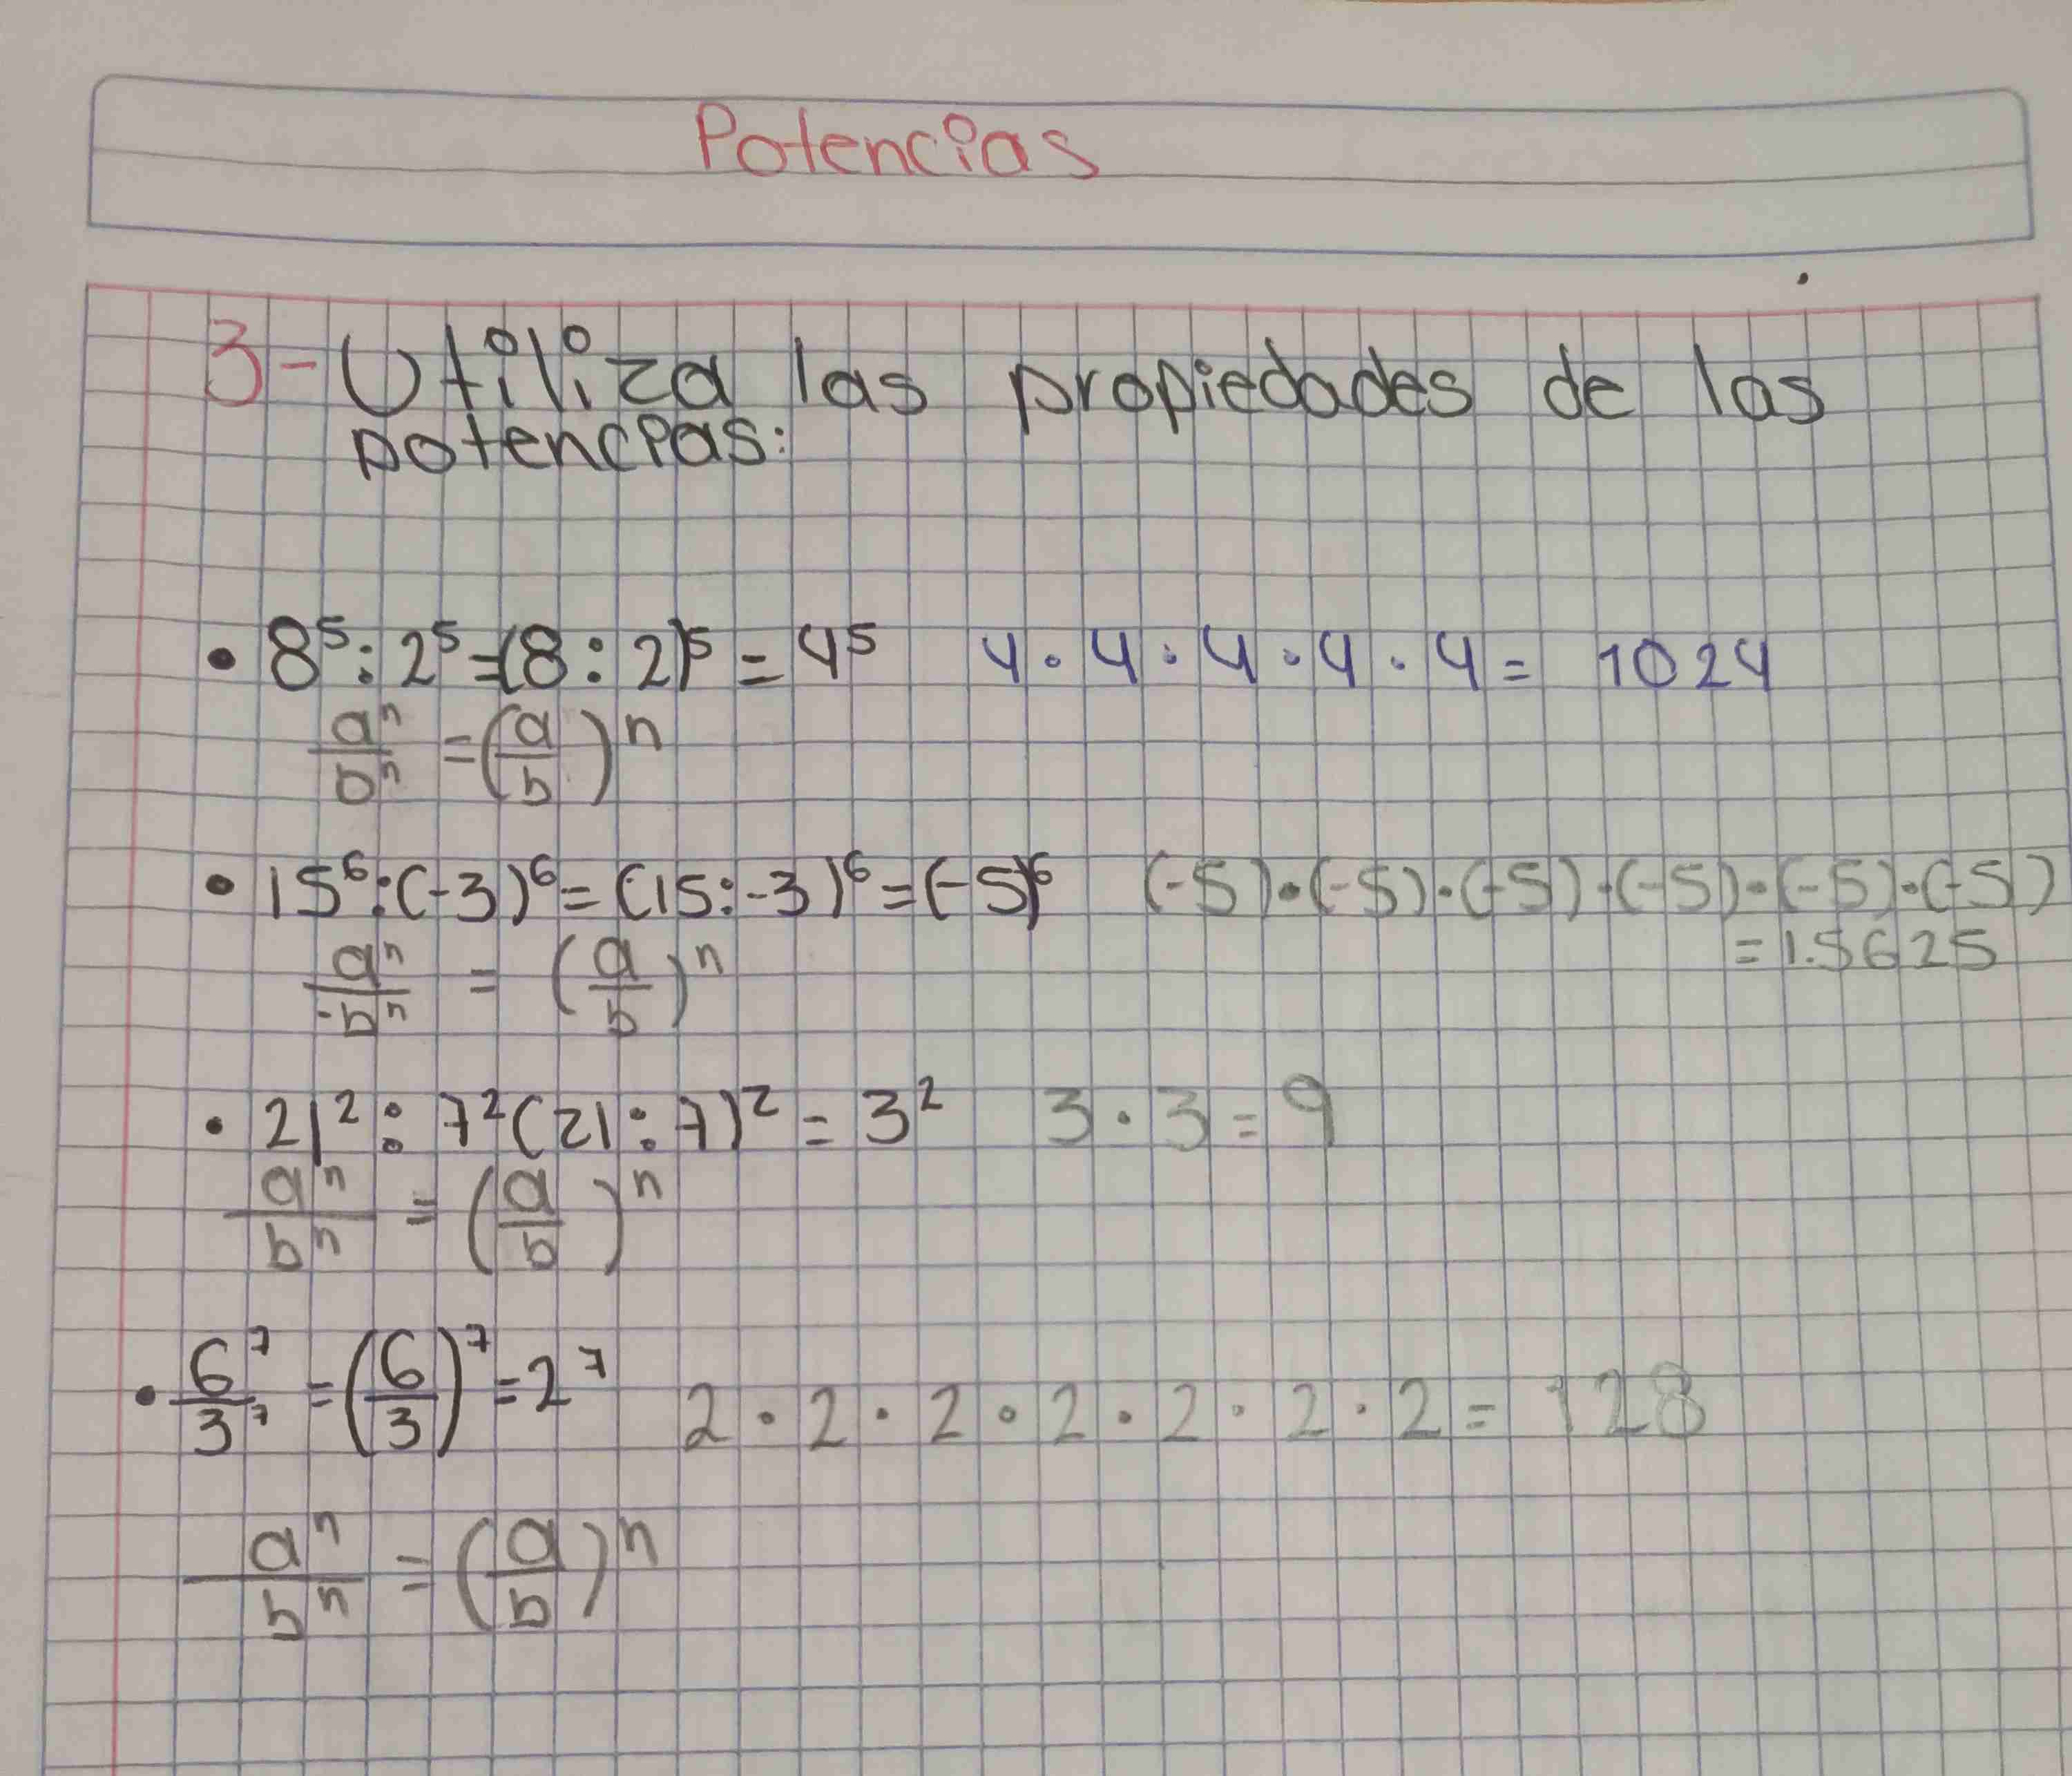 Potencias
3- Utiliza las propiedades de las
potencias:
• 8⁵ : 2⁵ = (8 : 2)⁵ = 4⁵ 4 · 4 · 4 · 4 · 4 = 1024
aⁿ/bⁿ = (a/b)ⁿ
• 15⁶ : (-3)⁶ = (15 : -3)⁶ = (-5)⁶ (-5) · (-5) · (-5) · (-5) · (-5) · (-5)
= 1.5625
aⁿ/-bⁿ = (a/b)ⁿ
• 21² : 7² (21 : 7)² = 3² 3 · 3 = 9
aⁿ/bⁿ = (a/b)ⁿ
• 6⁷/3⁷ = (6/3)⁷ = 2⁷ 2 · 2 · 2 · 2 · 2 · 2 · 2 = 128
aⁿ/bⁿ = (a/b)ⁿ